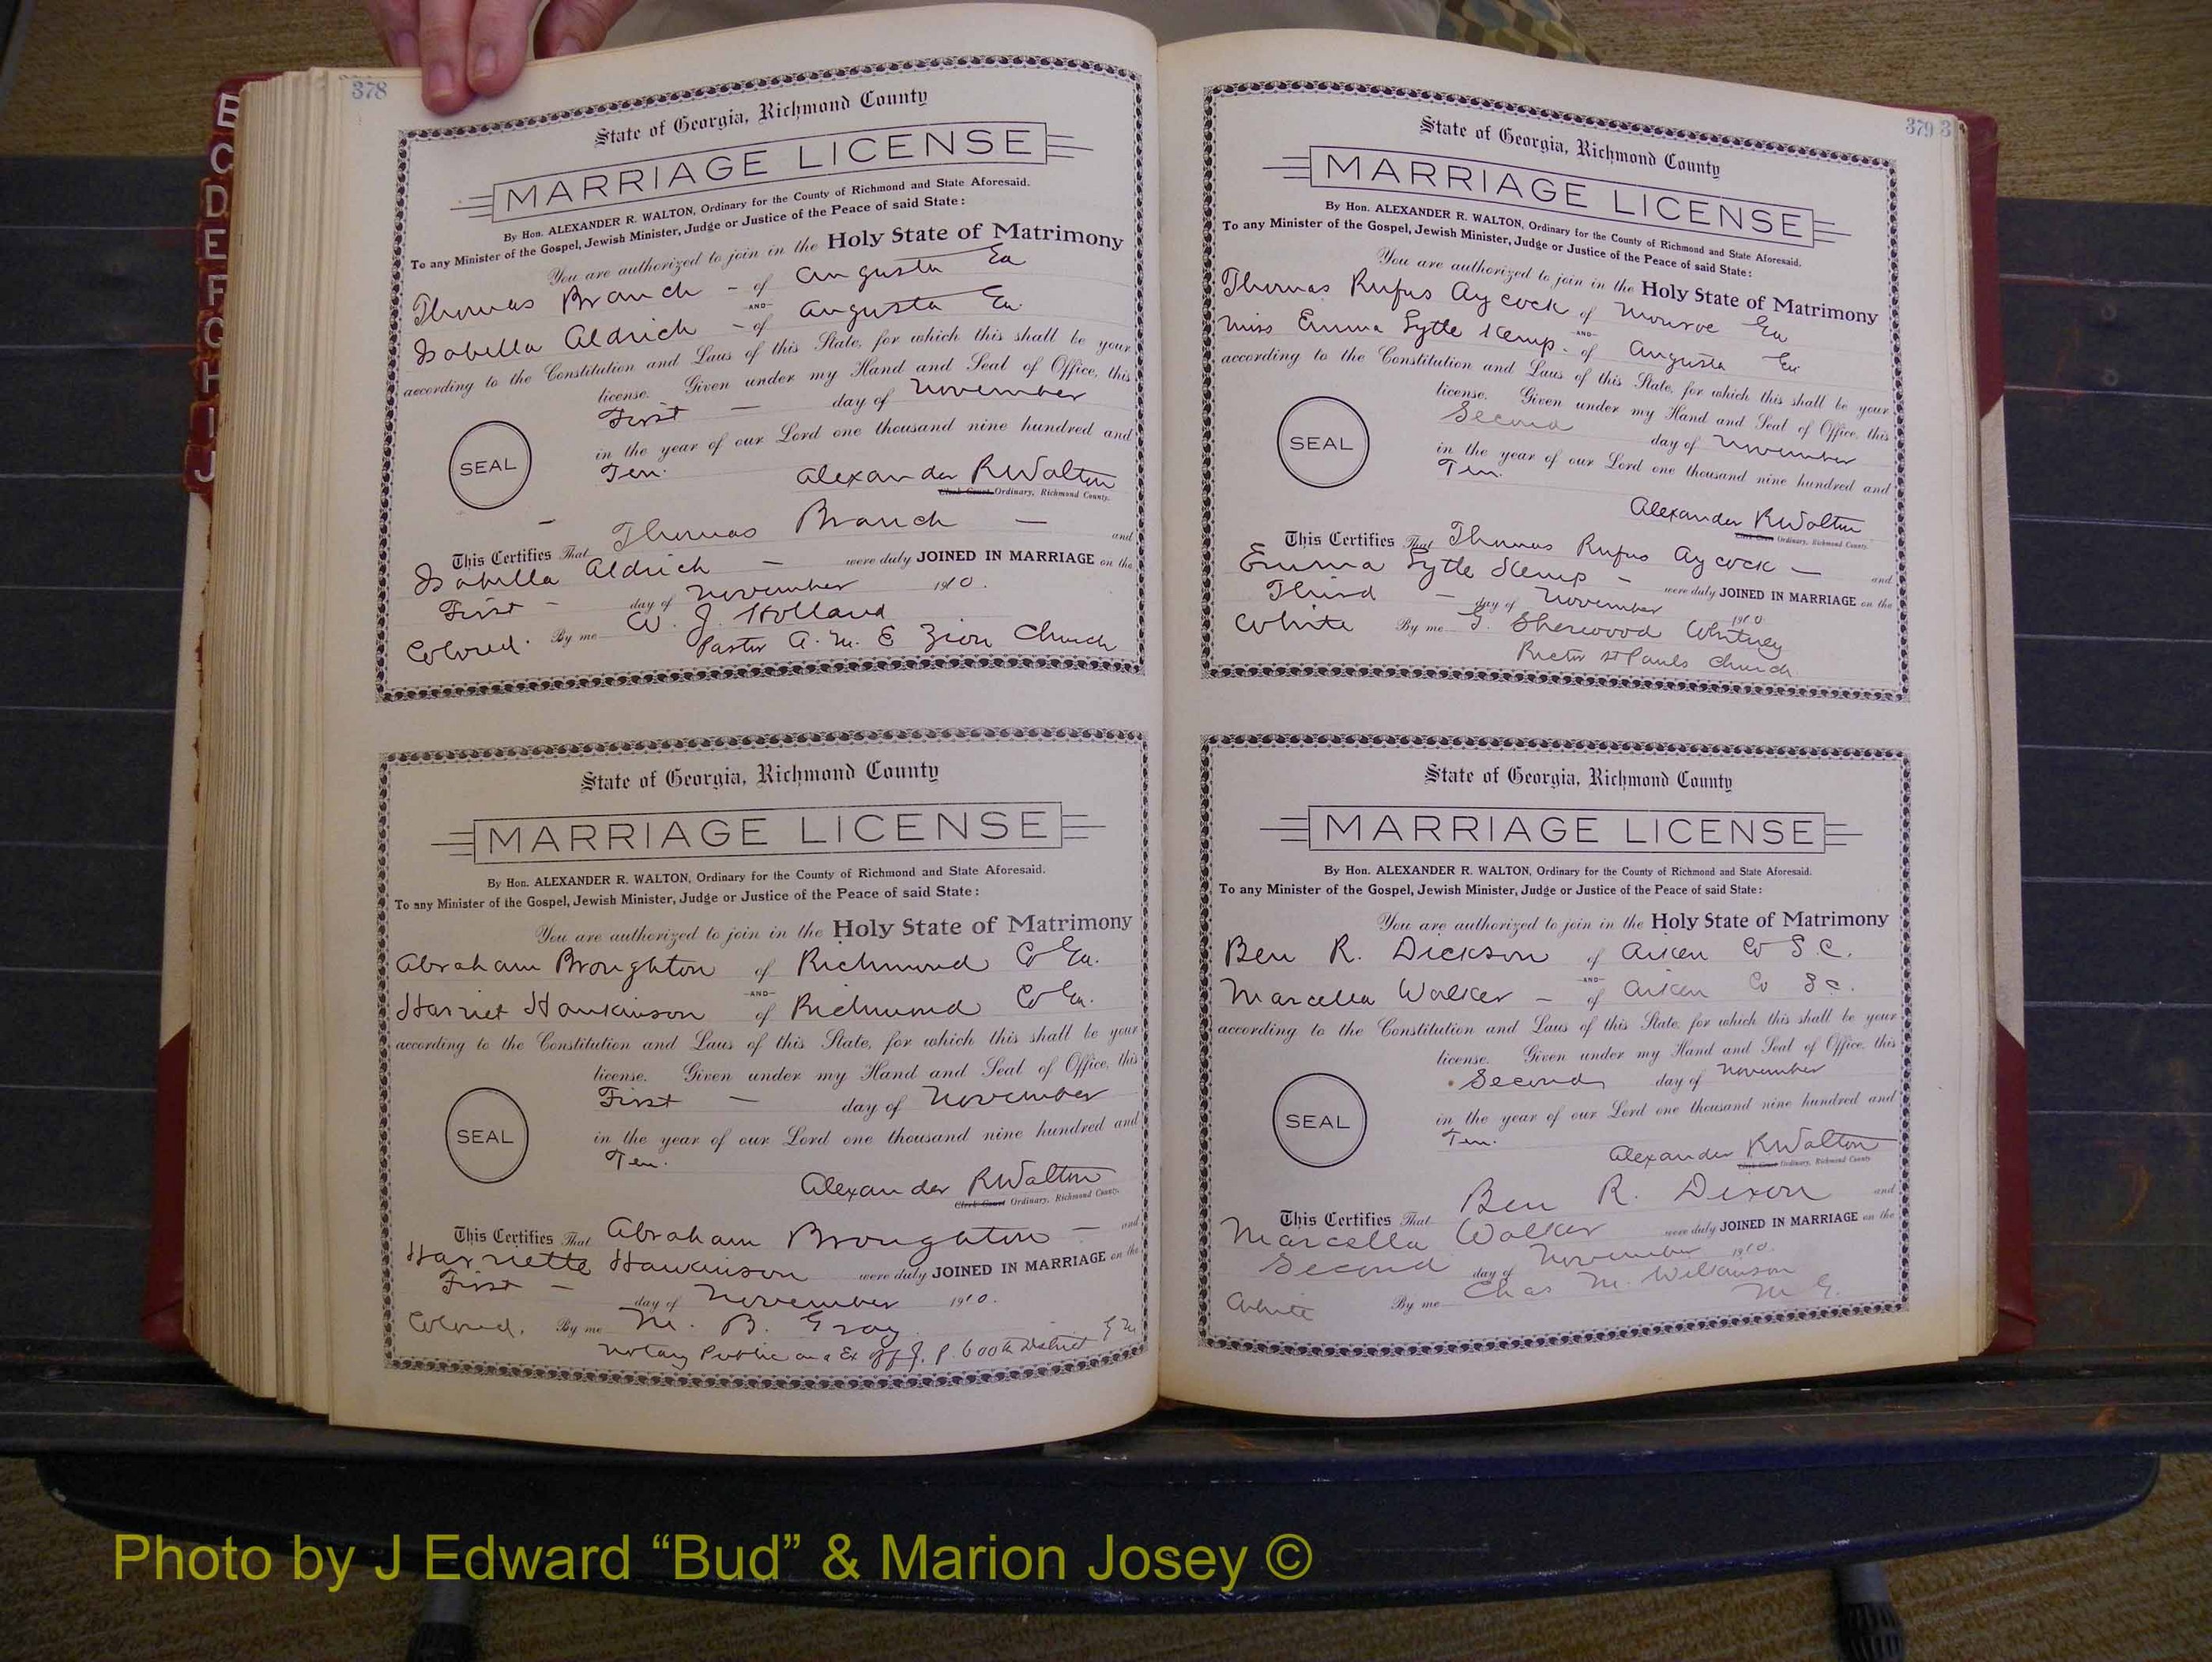 B
C
D
E
F
G
H
I
J
378
State of Georgia, Richmond County
MARRIAGE LICENSE
By Hon. ALEXANDER R. WALTON, Ordinary for the County of Richmond and State Aforesaid.
To any Minister of the Gospel, Jewish Minister, Judge or Justice of the Peace of said State:
You are authorized to join in the Holy State of Matrimony
Thomas Branch - of Augusta Ga
AND
Isabella Aldrich - of Augusta Ga
according to the Constitution and Laws of this State, for which this shall be your
license. Given under my Hand and Seal of Office, this
First - day of November
SEAL
in the year of our Lord one thousand nine hundred and
Ten.
Alexander R Walton
Clerk Court Ordinary, Richmond County.
This Certifies That Thomas Branch - and
Isabella Aldrich - were duly JOINED IN MARRIAGE on the
First - day of November 1910.
Colored. By me W. J. Holland
Pastor A. M. E Zion Church
State of Georgia, Richmond County
MARRIAGE LICENSE
By Hon. ALEXANDER R. WALTON, Ordinary for the County of Richmond and State Aforesaid.
To any Minister of the Gospel, Jewish Minister, Judge or Justice of the Peace of said State:
You are authorized to join in the Holy State of Matrimony
Abraham Broughton of Richmond Co Ga.
AND
Harriet Hankinson of Richmond Co Ga.
according to the Constitution and Laws of this State, for which this shall be your
license. Given under my Hand and Seal of Office, this
First - day of November
SEAL
in the year of our Lord one thousand nine hundred and
Ten.
Alexander R Walton
Clerk Court Ordinary, Richmond County.
This Certifies That Abraham Broughton - and
Harriette Hawkinson were duly JOINED IN MARRIAGE on the
First - day of November 1910.
Colored. By me M. B. Gray
Notary Public and Ex Off J. P. 600th District G M
379 3
State of Georgia, Richmond County
MARRIAGE LICENSE
By Hon. ALEXANDER R. WALTON, Ordinary for the County of Richmond and State Aforesaid.
To any Minister of the Gospel, Jewish Minister, Judge or Justice of the Peace of said State:
You are authorized to join in the Holy State of Matrimony
Thomas Rufus Aycock of Monroe Ga
AND
Miss Emma Lytle Kemp - of Augusta Ga
according to the Constitution and Laws of this State, for which this shall be your
license. Given under my Hand and Seal of Office, this
Second day of November
SEAL
in the year of our Lord one thousand nine hundred and
Ten.
Alexander R Walton
Clerk Court Ordinary, Richmond County.
This Certifies That Thomas Rufus Aycock - and
Emma Lytle Kemp - were duly JOINED IN MARRIAGE on the
Third - day of November 1910.
White By me G. Sherwood Whitney
Rector St Pauls Church
State of Georgia, Richmond County
MARRIAGE LICENSE
By Hon. ALEXANDER R. WALTON, Ordinary for the County of Richmond and State Aforesaid.
To any Minister of the Gospel, Jewish Minister, Judge or Justice of the Peace of said State:
You are authorized to join in the Holy State of Matrimony
Ben R. Dickson of Aiken Co S.C.
AND
Marcella Walker - of Aiken Co S C.
according to the Constitution and Laws of this State, for which this shall be your
license. Given under my Hand and Seal of Office, this
Second day of November
SEAL
in the year of our Lord one thousand nine hundred and
Ten.
Alexander R Walton
Clerk Court Ordinary, Richmond County
Ben R. Dixon and
This Certifies That
Marcella Walker were duly JOINED IN MARRIAGE on the
Second day of November 1910.
White By me Chas M. Wilkinson
M. G.
Photo by J Edward “Bud” & Marion Josey ©